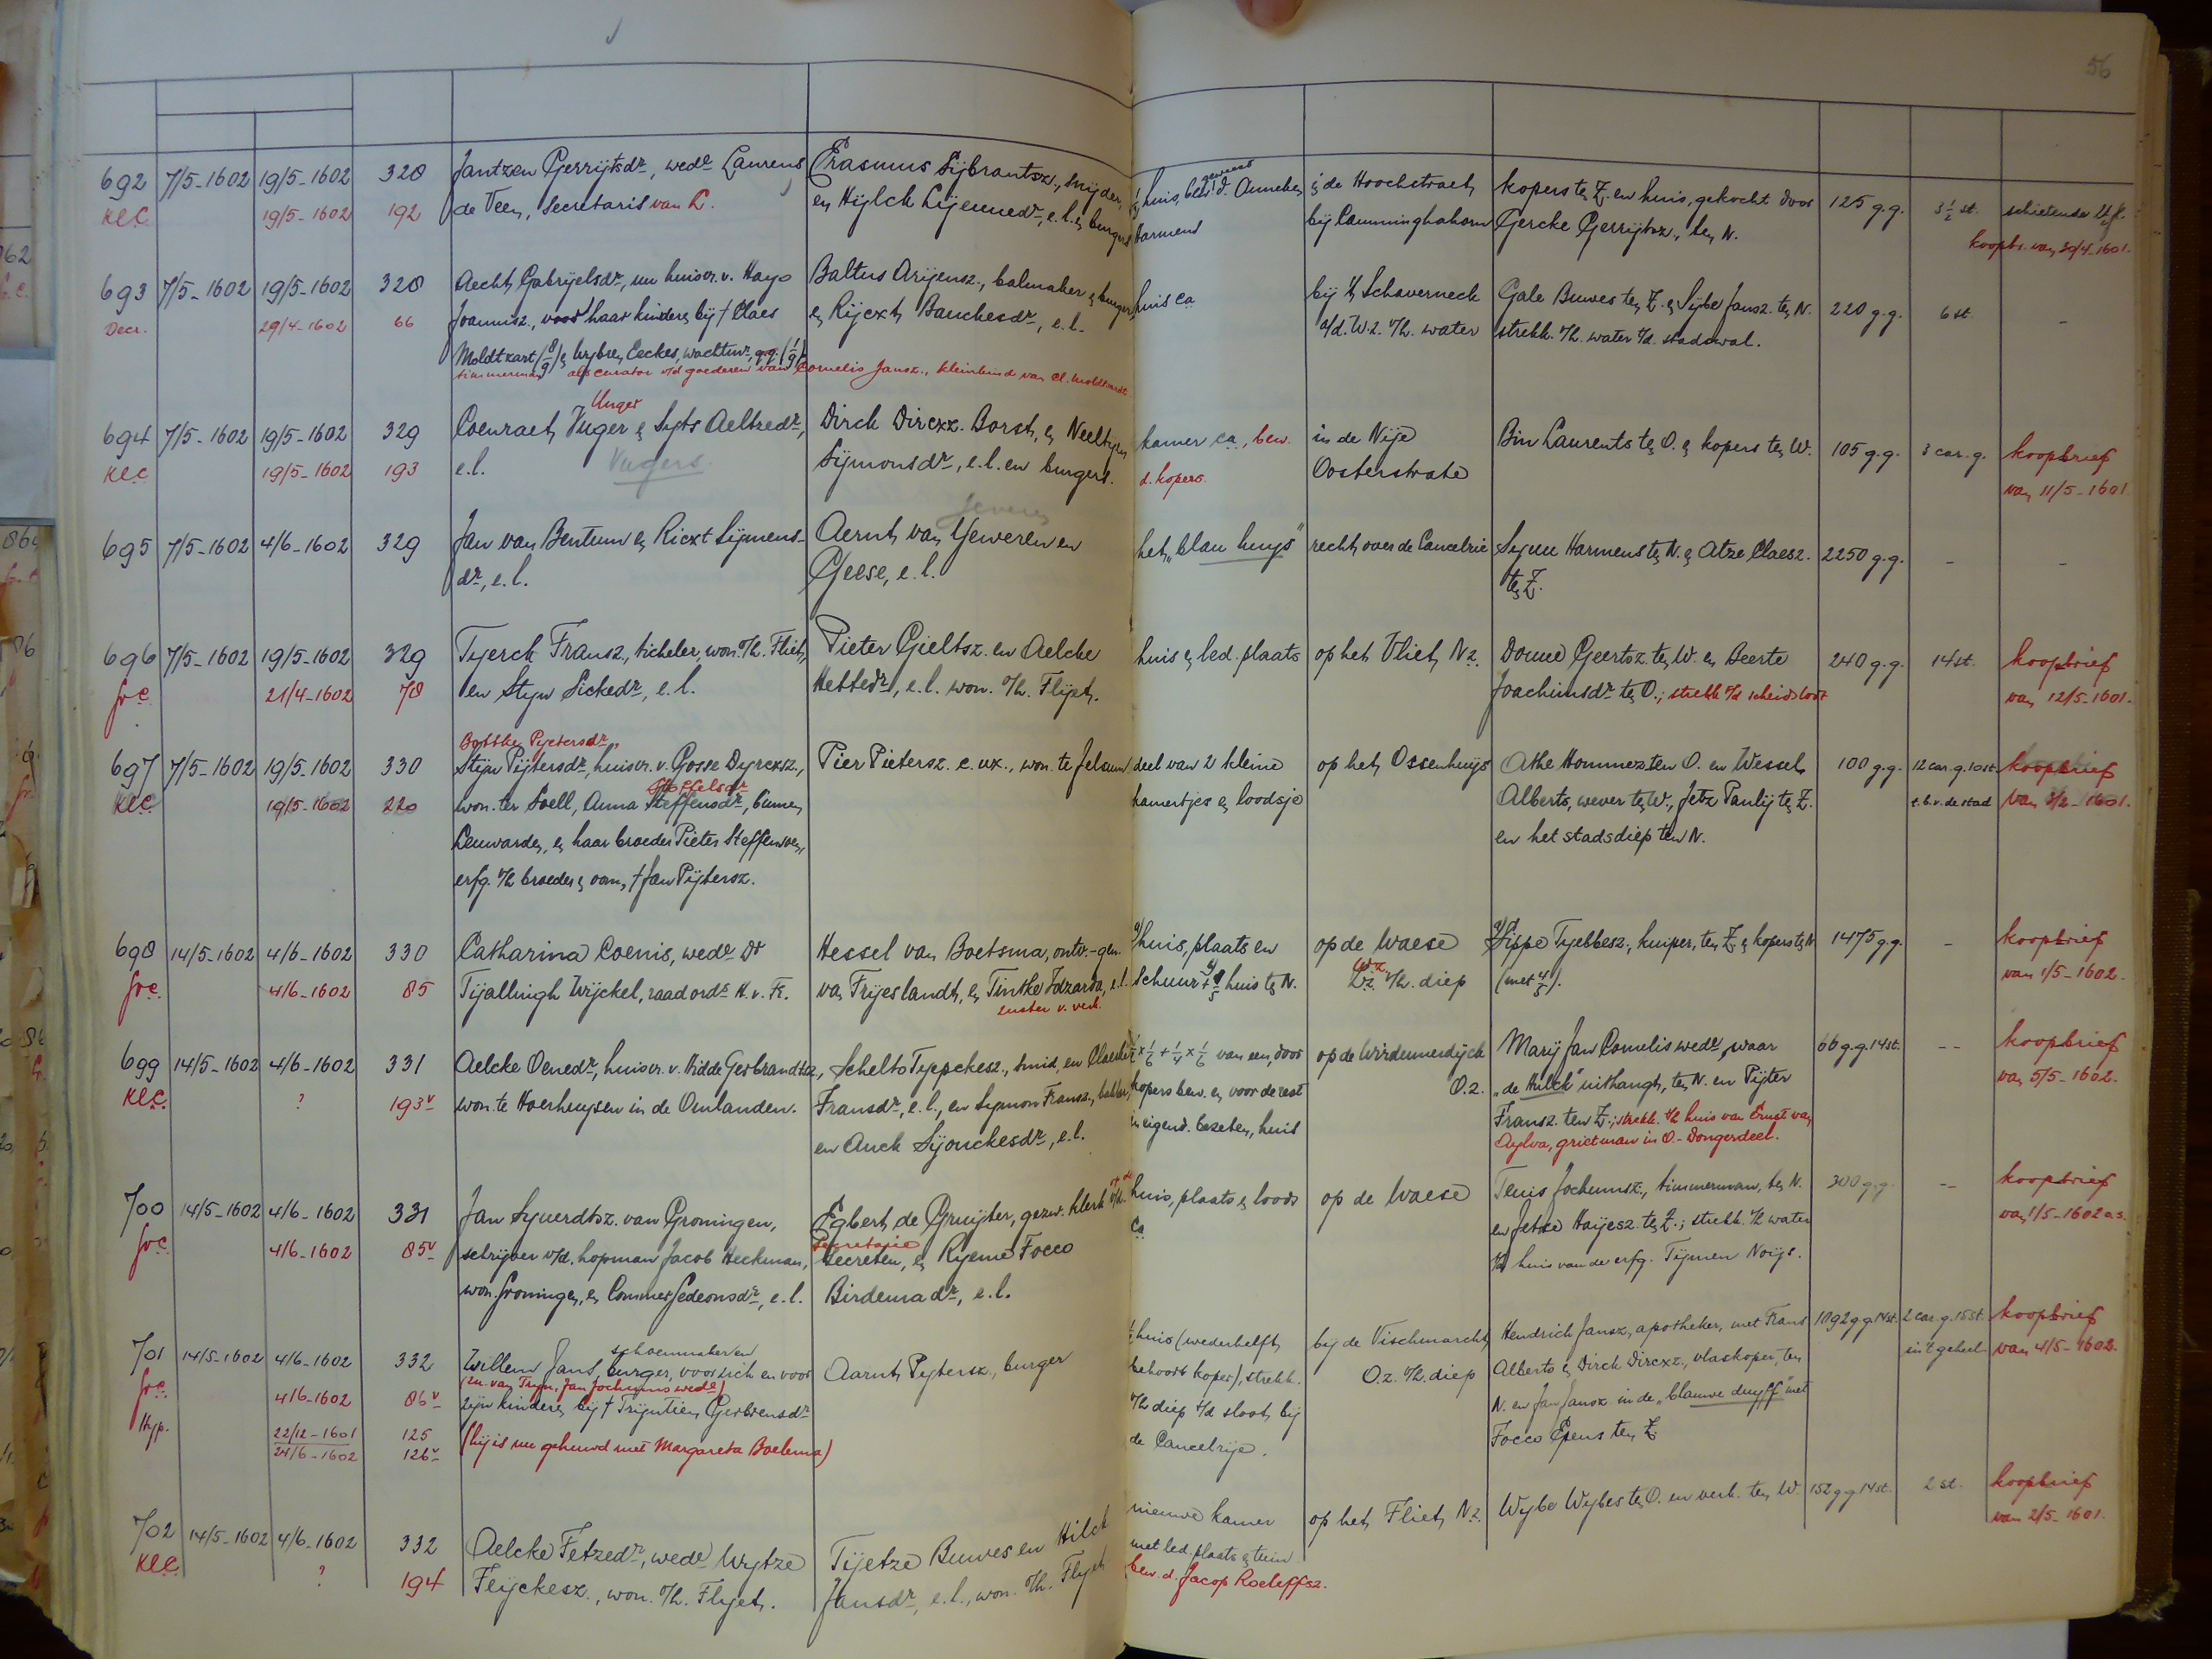 56
692 7/5-1602 19/5-1602 328 Jantzen Gerrijtsdr, wede Laurens Erasmus Sijbrantsz., snijder, huis, bew. d. Anneke geweest i/d de Hoochstraet kopers te Z. en huis, gekocht door 125 g.g. 3½ st. schietende
KLC 19/5-1602 192 de Veen, secretaris van L. en Hijlck Lijeuuedr, e.l. & burgers Harmens bij Camminghahorn Gercke Gerrijtsz., ten N. koopbr. van 30/4-1601.
693 7/5-1602 19/5-1602 328 Aecht Gabrijelsdr, nu huisvr. v. Hayo Baltus Arijensz., balmaker & burger, huis ca bij 't Schaverneck Gale Buwes ten Z. & Sijbe Jansz. ten N. 220 g.g. 6 st. -
Decr. 29/4-1602 66 Joannisz., voor haar kinderen bij † Claes & Rijcxt Bauckesdr, e.l. a/d. W.z. v/h. water strekk. v/h. water t/d. stadswal.
Moldtzart (8/9) & Wybren Eeckes, wachtmr, q.q. (1/9)
timmerman als curator o/d goederen van Cornelis Jansz., kleinkind van Cl. Moldtzardt
Unger
694 7/5-1602 19/5-1602 329 Coenraet Vuger & Syts Aeltzedr, Dirck Dircxz. Borst, & Neeltgen kamer ca, bew. in de Nije Bin Laurents te O. & kopers te W. 105 g.g. 3 car. g. koopbrief
KLC 19/5-1602 193 e.l. Vugers Sijmonsdr, e.l. en burgers. d. kopers. Oosterstrate van 11/5-1601.
Jeveren
695 7/5-1602 4/6-1602 329 Jan van Bentum & Ricxt Sijmens- Aernt van Yeweren en het "blau huys" recht over de Cancelrie Sijuu Harmens te N. & Atze Claesz. 2250 g.g. - -
dr, e.l. Geese, e.l. te Z.
696 7/5-1602 19/5-1602 329 Tyerck Fransz., ticheler, won. o/h. Fliet, Pieter Gieltsz. en Aelcke huis & led. plaats op het Vliet, Nz. Douue Geertsz. te W. en Beerte 240 g.g. 14 st. koopbrief
Gr.C. 21/4-1602 78 en Styn Sickedr, e.l. Hettedr, e.l. won. o/h. Flijet. Joachimsdr te O.; strekk t/d scheidsloot van 12/5-1601.
Bottke Pyetersdr,
697 7/5-1602 19/5-1602 330 Stijn Pijtersdr, huisvr. v. Gosse Dyrcxsz., Pier Pietersz. c. ux., won. te Jelsum deel van 2 kleine op het Ossenhuijs Athe Hommez ten O. en Wessel 100 g.g. 12 car. g. 10 st. koopbrief
Stoffelsdr
KLC 19/5-1602 220 won. ter Soell, Anna Steffensdr, binnen kamertjes & loodsje Alberts, wever te W., Jetz Paulij te Z. t.b.v. de stad van 2/2-1601.
Leuwarden, en haar broeder Pieter Steffenszoon, en het stadsdiep ten N.
erfg. v/h broeder & oom, † Jan Pijtersz.
698 14/5-1602 4/6-1602 330 Catharina Coenis, wede Dr Hessel van Boetsma, ontv.-gen. huis, plaats en op de Waese Sippe Tjebbesz., kuiper, ten Z. & kopers te N. 1475 g.g. - koopbrief
Gr.C. 4/6-1602 85 Tijallingh Wijckel, raad ordr H. v. Fr. van Frijeslandt, & Tintke Idzarda, e.l. schuur + huis te N. W.z. v/h. diep (met 4/5). van 1/5-1602.
zuster v. verk.
699 14/5-1602 4/6-1602 331 Aelcke Oenedr, huisvr. v. Hidde Gerbrandtsz., Schelto Tyepckesz., smid, en Claeske van een, door op de Wirdumerdijck Marij Jan Cornelis wede, waar 66 g.g. 14 st. -- koopbrief
KLC. ? 193v won. te Hoerhuysen in de Omlanden. Fransdr, e.l., en Symon Fransz., bakker, kopers bew. en voor de rest O.z. "de Hulck" uithangt, te N. en Pijter van 5/5-1602.
en Auck Sijouckesdr, e.l. in eigend. bezeten, huis Fransz. ten Z.; strekk. t/h huis van Ernst van
Aylva, grietman in O.-Dongerdeel.
700 14/5-1602 4/6-1602 331 Jan Sjuerdtsz. van Groningen, Egbert de Gruijter, gezw. klerk v/h. op de huis, plaats & loods op de Waese Teuis Jochumsz., timmerman, te N. 300 g.g. -- koopbrief
Gr.C. 4/6-1602 85v schrijver v/d. hopman Jacob Heckman, secretarie Secreten, & Ryeme Focco ca en Jetse Haijesz. te Z.; strekk. v/h water van 1/5-1602 a.s.
won. Groningen, & Commer Gedeonsdr, e.l. Birdema dr, e.l. t/h huis van de erfg. Tijmen Noijs.
schoenmaker en
701 14/5-1602 4/6-1602 332 Willem Jans, burger, voor zich en voor Aarnt Pejtersz., burger ½ huis (wederhelft bij de Vischmarckt Hendrick Jansz, apotheker, met Frans 1092 g.g. 14 st. 2 car. g. 15 st. koopbrief
(zn. van Tryn, Jan Jochums wede)
Gr.C. 4/6-1602 86v zijn kinderen bij † Trijntien Gerbrensdr behoort koper), strekk. O.z. v/h. diep Alberts & Dirck Dircxz., vlaskoper, ten in 't geheel van 4/5-1602.
Hyp. 22/12-1601 125 (hij is nu gehuwd met Margareta Boelema) v/h diep t/d sloot bij N. en Jan Jansz in de "blauwe duyff" met
24/6-1602 126v de Cancelrije. Focco Epeus ten Z.
702 14/5-1602 4/6-1602 332 Aelcke Fetzedr, wede Wytze Tijetze Buwes en Hilck nieuwe kamer op het Fliet, Nz. Wybe Wybes te O. en verk. ten W. 152 g.g. 14 st. 2 st. koopbrief
KLC. ? 194 Feijckesz., won. o/h. Flyet. Jansdr, e.l., won. o/h. Flyet met led. plaats & tuin van 2/5-1601.
bew. d. Jacop Roeleffsz.